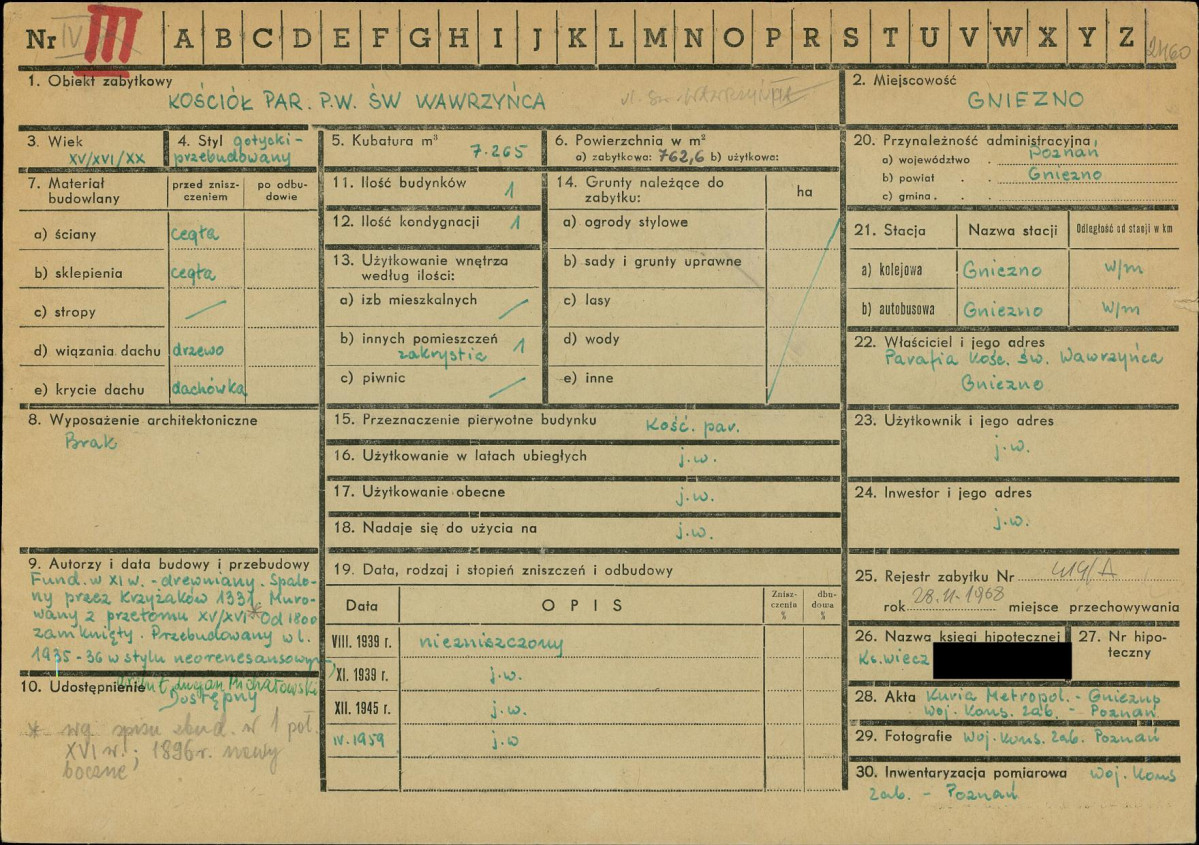 Nr IV III A B C D E F G H I J K L M N O P R S T U V W X Y Z 2460
1. Obiekt zabytkowy
KOŚCIÓŁ PAR. P.W. ŚW WAWRZYŃCA
ul. Św. Wawrzyńca
2. Miejscowość
GNIEZNO
3. Wiek
XV/XVI/XX
4. Styl gotycki-
przebudowany
5. Kubatura m³
7.265
6. Powierzchnia w m²
a) zabytkowa: 762,6 b) użytkowa:
20. Przynależność administracyjna
a) województwo Poznań
b) powiat Gniezno
c) gmina
7. Materiał budowlany
przed zniszczeniem
po odbudowie
a) ściany cegła
b) sklepienia cegła
c) stropy
d) wiązania dachu drzewo
e) krycie dachu dachówka
11. Ilość budynków 1
12. Ilość kondygnacji 1
13. Użytkowanie wnętrza
według ilości:
a) izb mieszkalnych
b) innych pomieszczeń
zakrystia 1
c) piwnic
14. Grunty należące do
zabytku:
ha
a) ogrody stylowe
b) sady i grunty uprawne
c) lasy
d) wody
e) inne
21. Stacja Nazwa stacji Odległość od stacji w km
a) kolejowa Gniezno w/m
b) autobusowa Gniezno w/m
22. Właściciel i jego adres
Parafia Kośc. św. Wawrzyńca
Gniezno
8. Wyposażenie architektoniczne
Brak
15. Przeznaczenie pierwotne budynku Kość. par.
16. Użytkowanie w latach ubiegłych j.w.
17. Użytkowanie obecne j.w.
18. Nadaje się do użycia na j.w.
23. Użytkownik i jego adres
j.w.
24. Inwestor i jego adres
j.w.
9. Autorzy i data budowy i przebudowy
Fund. w XI w. - drewniany. Spalo-
ny przez Krzyżaków 1331. Muro-
wany z przełomu XV/XVI * Od 1800
zamknięty. Przebudowany w l.
1935-36 w stylu neorenesansowym
Michałowski
10. Udostępnienie
Dostępny
* wg spisu zbud. w 1 poł.
XVI w.; 1896 r. nawy
boczne
19. Data, rodzaj i stopień zniszczeń i odbudowy
Data OPIS Zniszczenia % dbudowa %
VIII. 1939 r. niezniszczony
XI. 1939 r. j.w.
XII. 1945 r. j.w.
IV. 1959 j.w
25. Rejestr zabytku Nr 419/A
rok 28.II.1968 miejsce przechowywania
26. Nazwa księgi hipotecznej
Ks. wiecz
27. Nr hipoteczny
28. Akta Kuria Metropol. - Gniezno
Woj. Kons. zab. - Poznań
29. Fotografie Woj. Kons. zab. Poznań
30. Inwentaryzacja pomiarowa Woj. Kons
zab. - Poznań